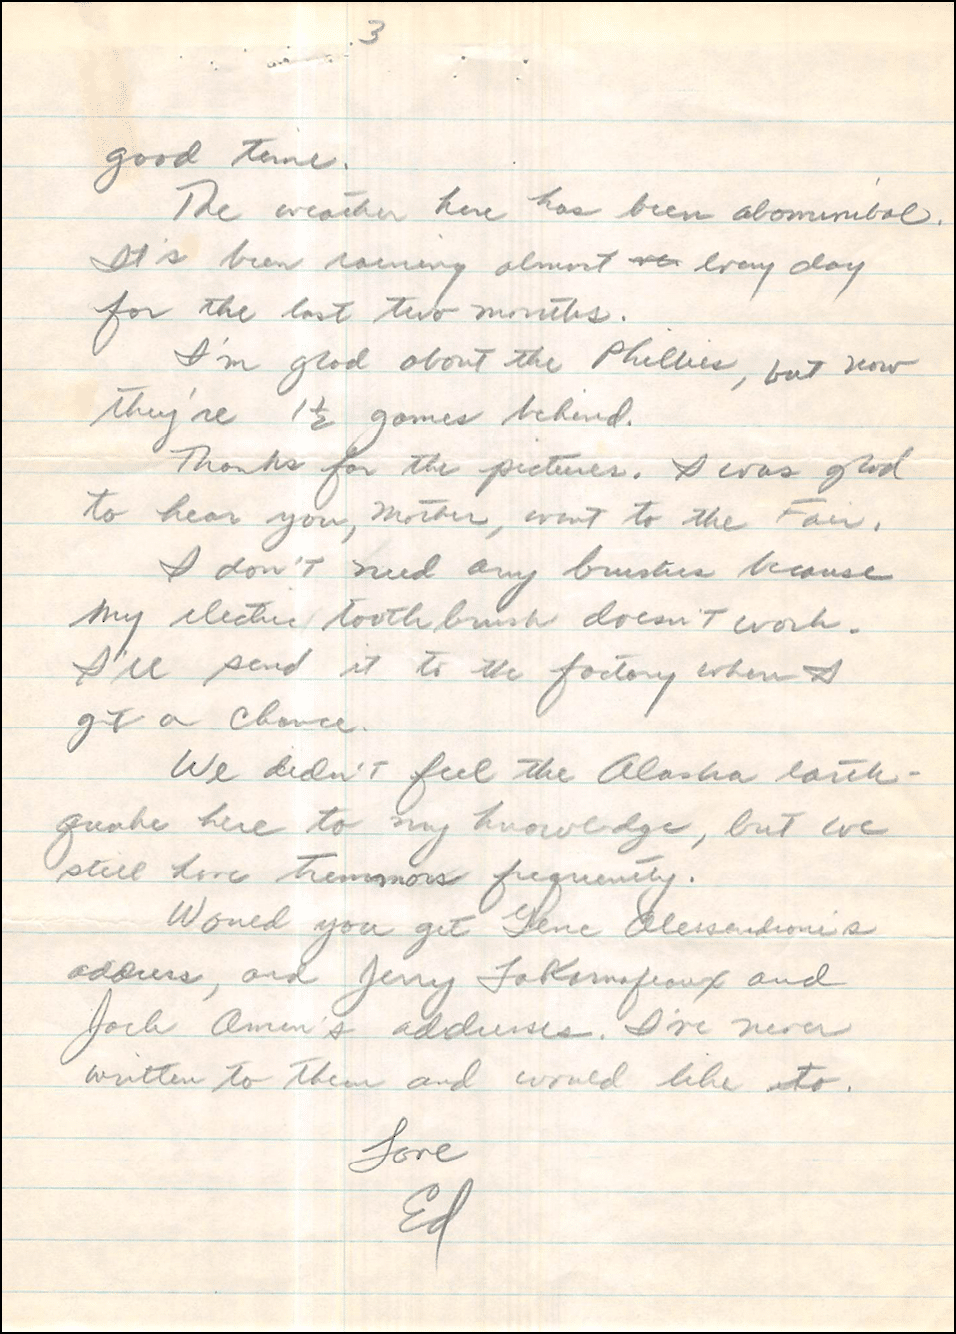 3
good time.
The weather here has been abominibal.
It's been raining almost every day
for the last two months.
I'm glad about the Phillies, but now
they're 1½ games behind.
Thanks for the pictures. I was glad
to hear you, Mother, went to the Fair.
I don't need any brushes because
my electric toothbrush doesn't work.
I'll send it to the factory when I
get a chance.
We didn't feel the Alaska earth-
quake here to my knowledge, but we
still have tremmors frequently.
Would you get Gene Alessandroni's
address, and Jerry and
Jack Amen's addresses. I've never
written to them and would like to.
Love
Ed